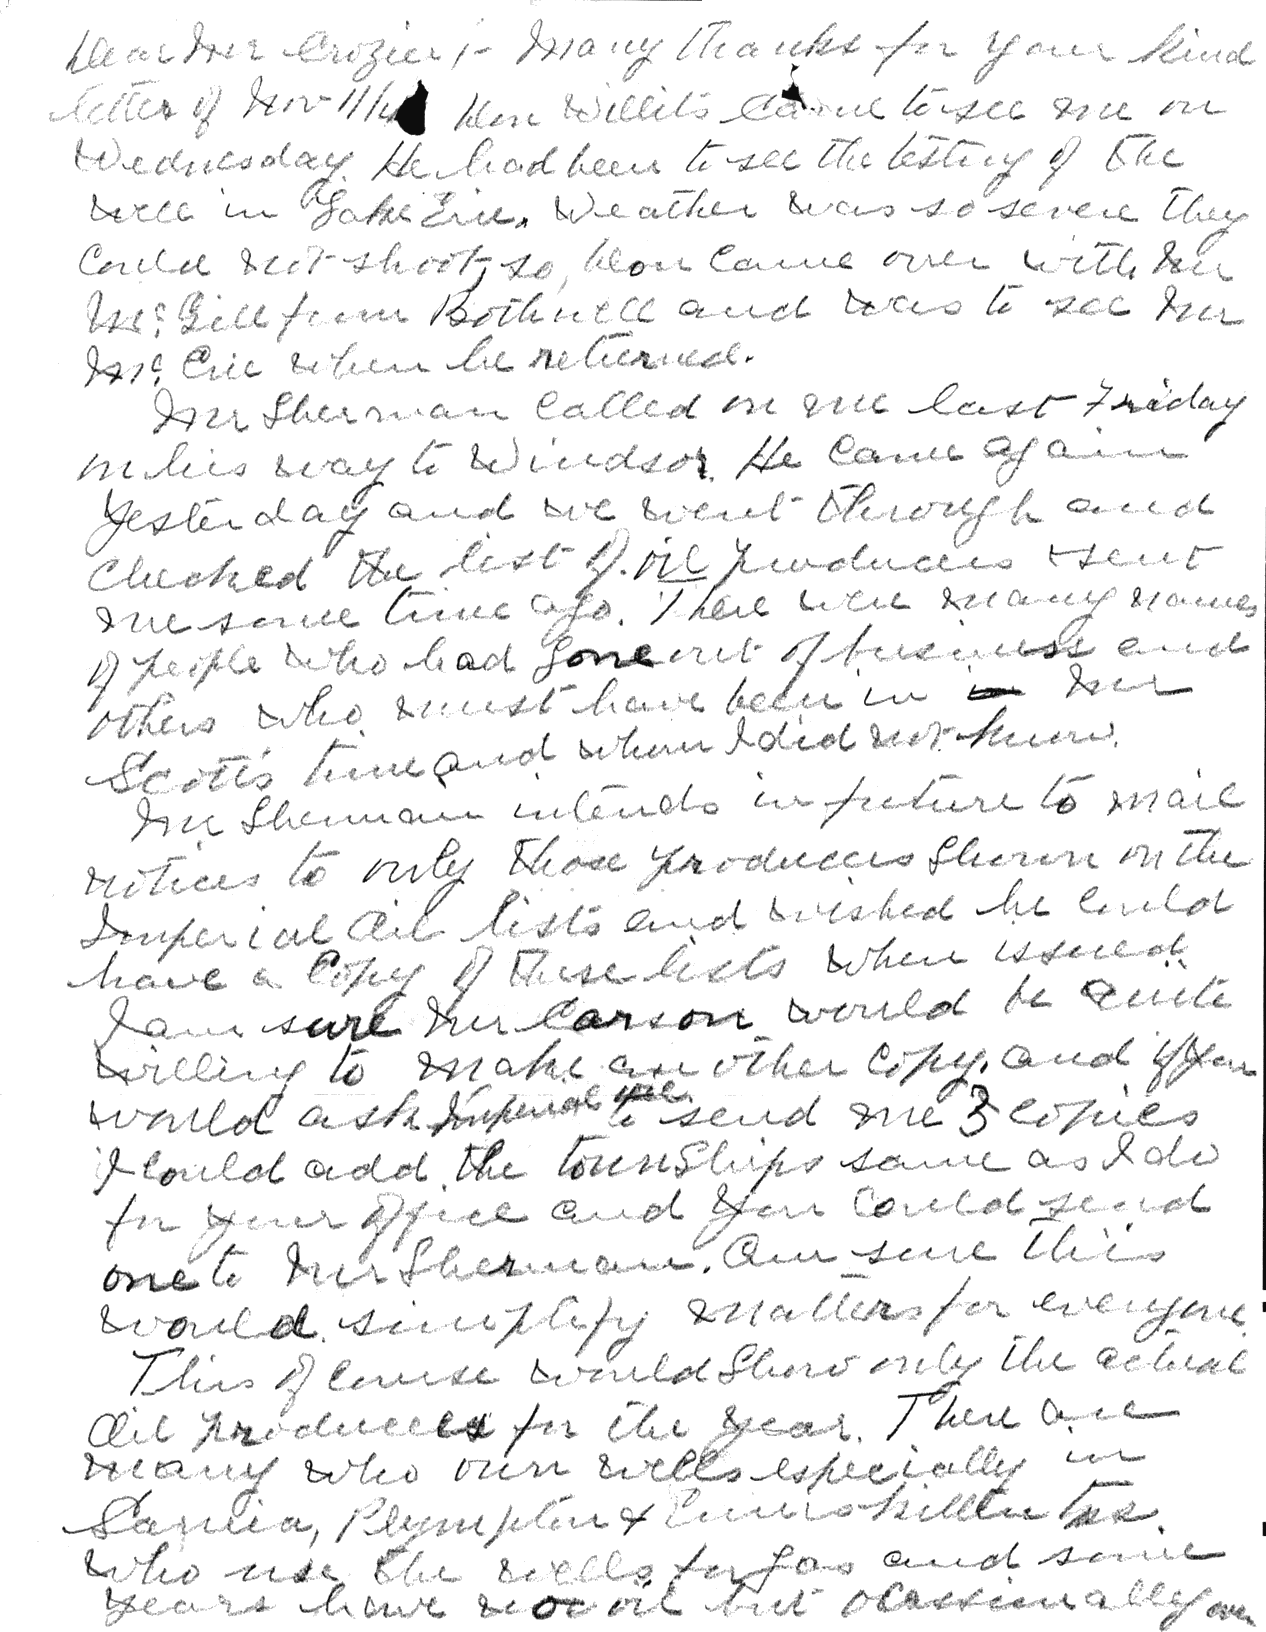 Dear Mr Crozier;- Many thanks for your kind
letter of Nov 11/4 Don Willits came to see me on
Wednesday. He had been to see the testing of the
well in Lake Erie. Weather was so severe they
could not shoot, so, Don came over with Mr
McGill from Bothwell and was to see Mr
Mc. when he returned.
Mr Sherman called on me last Friday
on his way to Windsor. He came again
yesterday and we went through and
checked the list of oil producers I sent
me some time ago. There were many names
of people who had gone out of business and
others who must have been in in Mr
Scott's time and whom I did not know.
Mr Sherman intends in future to mail
notices to only those producers shown on the
Imperial Oil lists and wished he could
have a copy of these lists when issued.
I am sure Mr Carson would be quite
willing to make another copy, and if you
would ask Imperial Oil to send me 3 copies
I could add the townships same as I do
for your office and you could send
one to Mr Sherman. Am sure this
would simplify matters for everyone.
This of course would show only the actual
Oil producers for the year. There are
many who own wells especially in
Sarnia, Plympton & Enniskillen Tps.
who use the wells for gas and some
years have no oil but ocassionally over